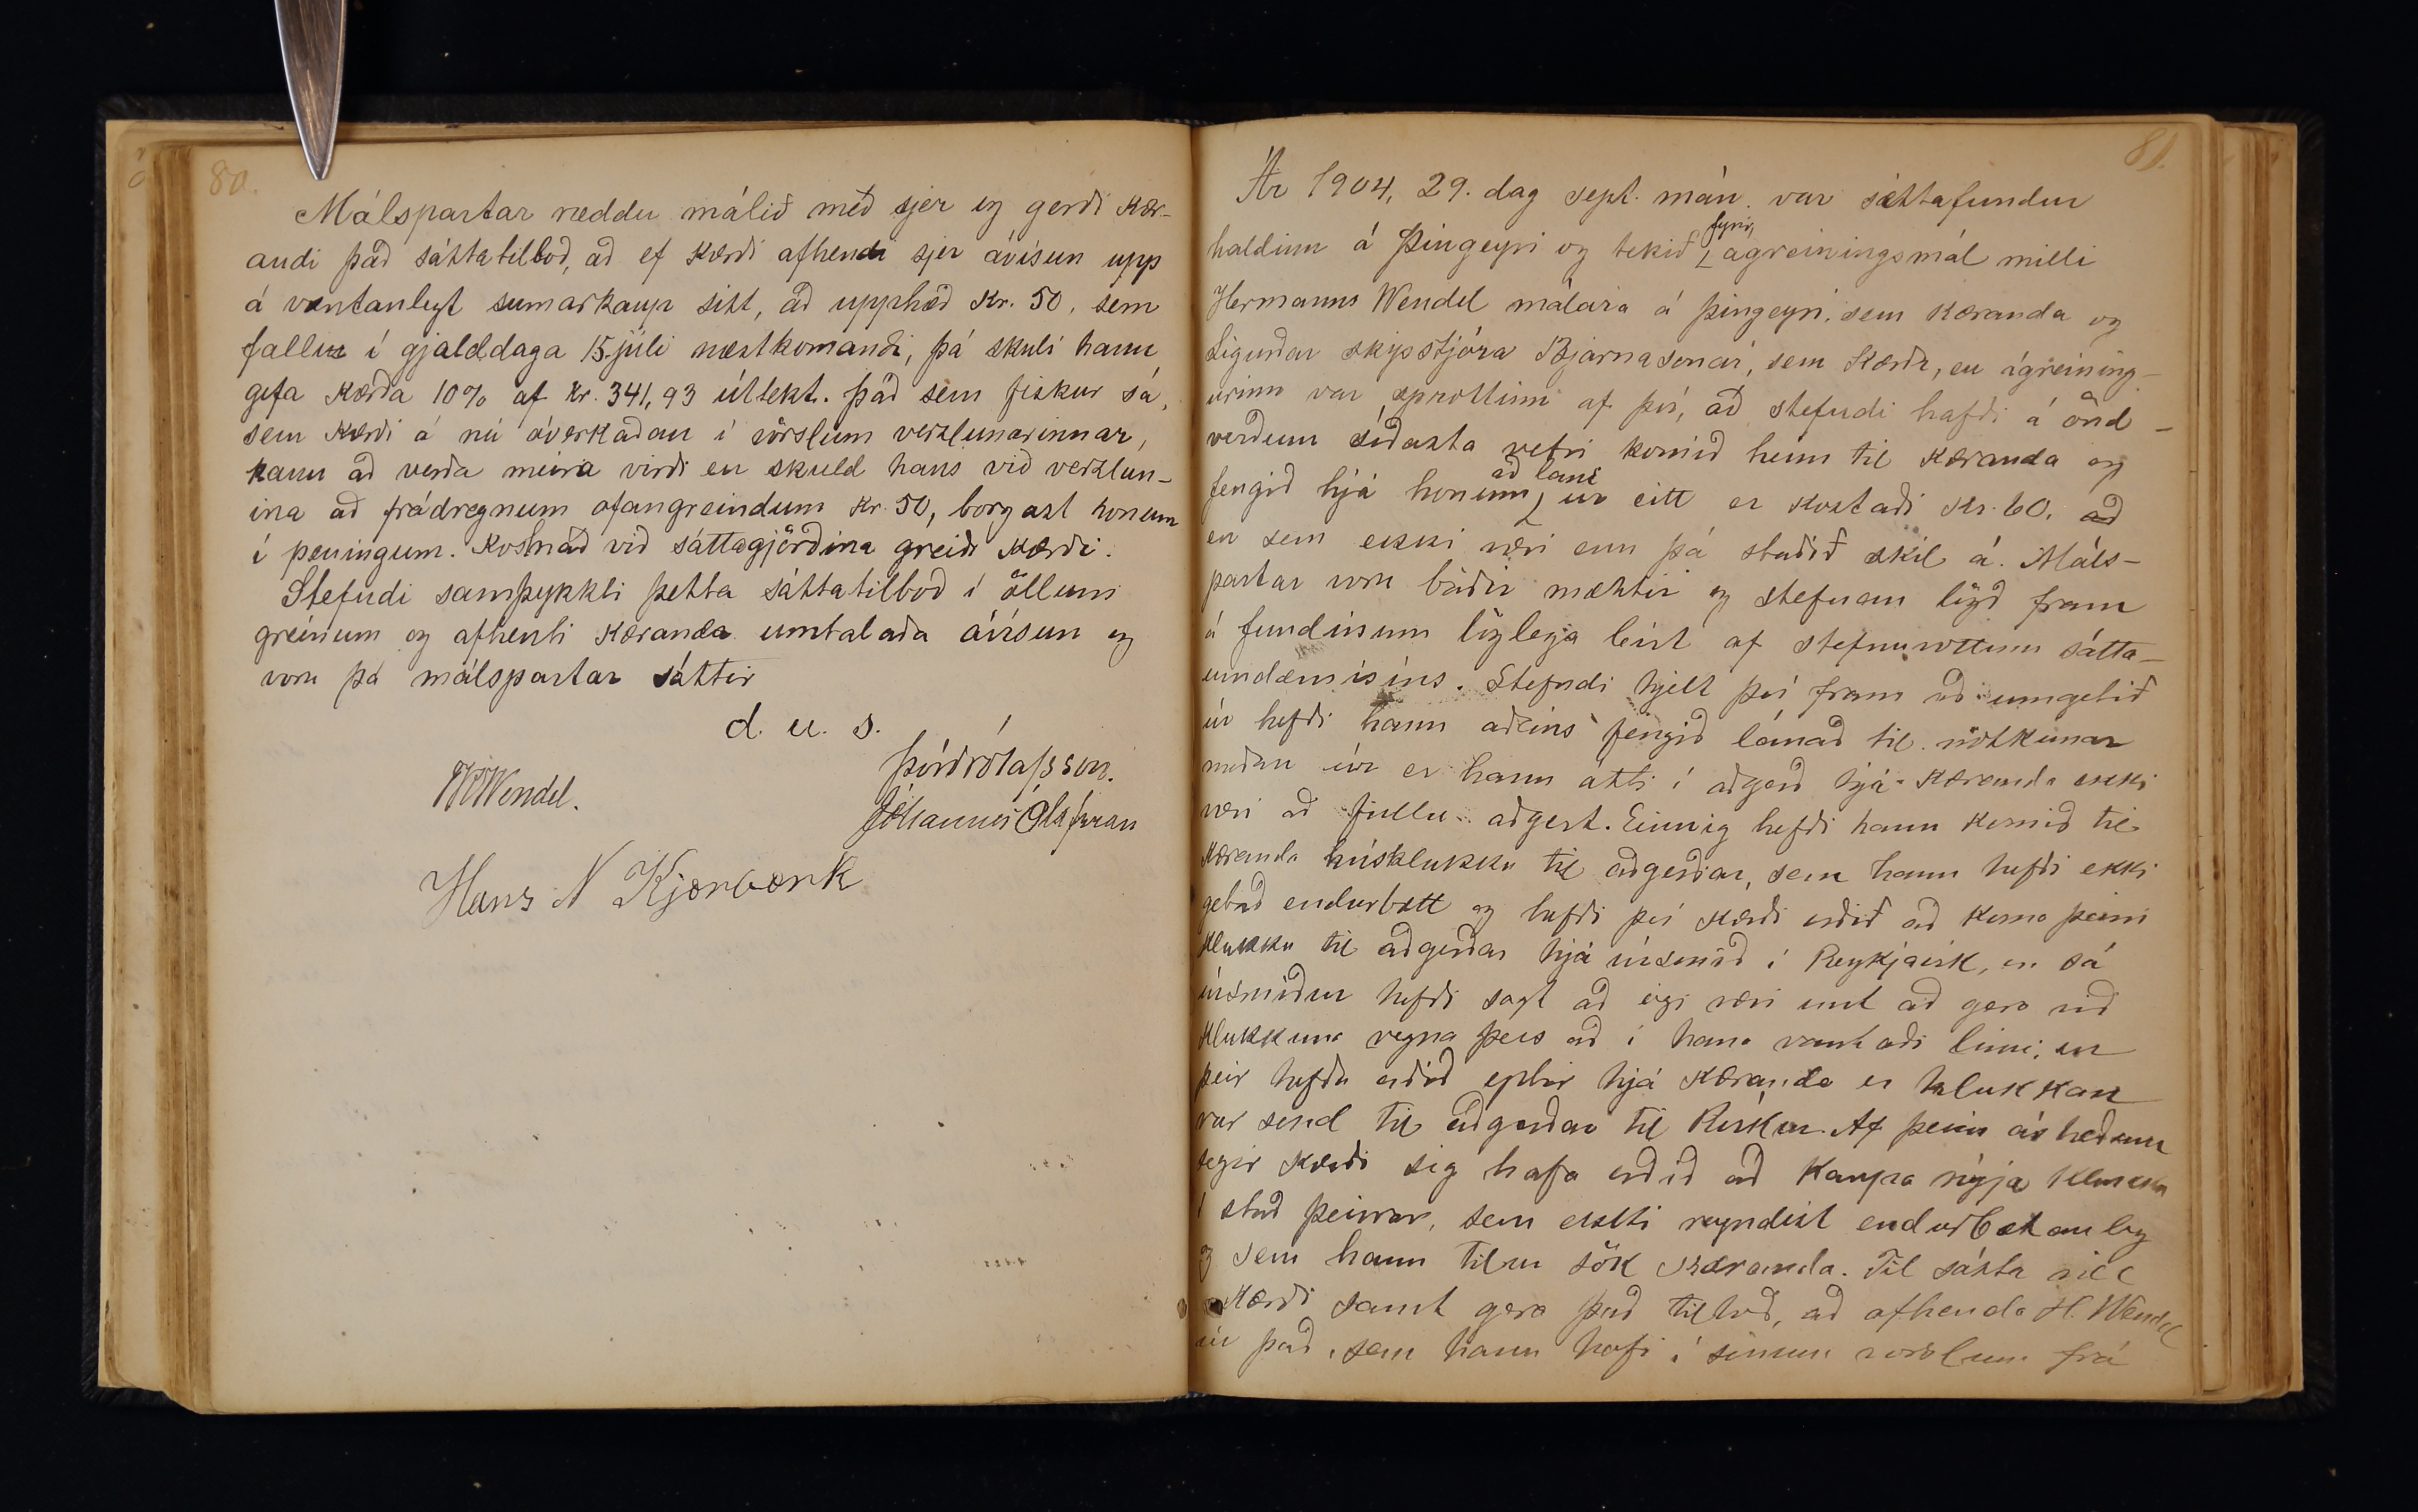 80.
Málspartar ræddu málið með sjer og gerði kær-
andi það sáttatilboð, að ef kærði afhendi sjer ávísun upp
á væntanlegt sumarkaup sitt, að upphæð Kr. 50, sem
falli í gjalddaga 15. júli næstkomandi, þá skuli hann
gefa kærða 10% af kr. 341,93 úttekt. Það sem fiskur sá,
sem kærði á nú óverkaðan í vörslum verzlunarinnar,
kann að verða meira virði en skuld hans við verzlun-
ina að frádregnum ofangreindum Kr. 50, borgast honum
í peningum. Kostnað við sáttagjörðina greiði kærði.
Stefndi samþykkti þetta sáttatilboð í öllum
greinum og afhenti kæranda umtalaða ávísun og
voru þá málspartar sáttir
d. u. s.
Þórðr Ólafsson.
Wendel.
Jóhannes Ólafsson
Hans N Kjærbærk
81.
Ár 1904, 29. dag sept. mán. var sáttafundur
haldinn á Þingeyri og tekið fyrir ágreiningsmál milli
Hermanns Wendel málara á Þingeyri, sem kæranda og
Sigurðar skipstjóra Bjarnasonar, sem kærða, en ágreining-
urinn var sprottinn af því, að stefndi hafði á önd-
verðum síðasta vetri komið heim til kæranda og
fengið hjá honum að láni úr eitt er kostaði Kr. 60. að
en sem ekki væri enn þá staðið skil á. Máls-
partar voru báðir mættir og stefnan lögð fram
á fundinum löglega birt af stefnuvottum sátta-
umdæmisins. Stefndi hjelt því fram að umgetið
úr hefði hann aðeins fengið lánað til nötkunar
meðan úr er hann átti í aðgerð hjá kæranda ekki
væri að fullu aðgert. Einnig hefði hann komið til
kæranda húsklukku til aðgerðar, sem hann hefði ekki
getað endurbætt og hefði því kærði orðið að koma þeirri
klukku til aðgerðar hjá úrsmið í Reykjavik, en sá
úrsmiður hefði sagt að eigi væri unt að gera við
klukkuna vegna þess að í hana vantaði linni, en
þeir hefðu orðið eptir hjá kæranda er klukkan
var send til aðgerðar til Rvíkur. Af þeim ástæðum
segir kærði sig hafa orðið að kaupa nýja klukku
í stað þeirrar, sem ekki reyndist endurbætanleg
og sem hann telur sök kæranda. Til sátta vill
kærði samt gera það tilboð, að afhenda H. Wendel
úr það, sem hann hafi í sínum vorslum frá